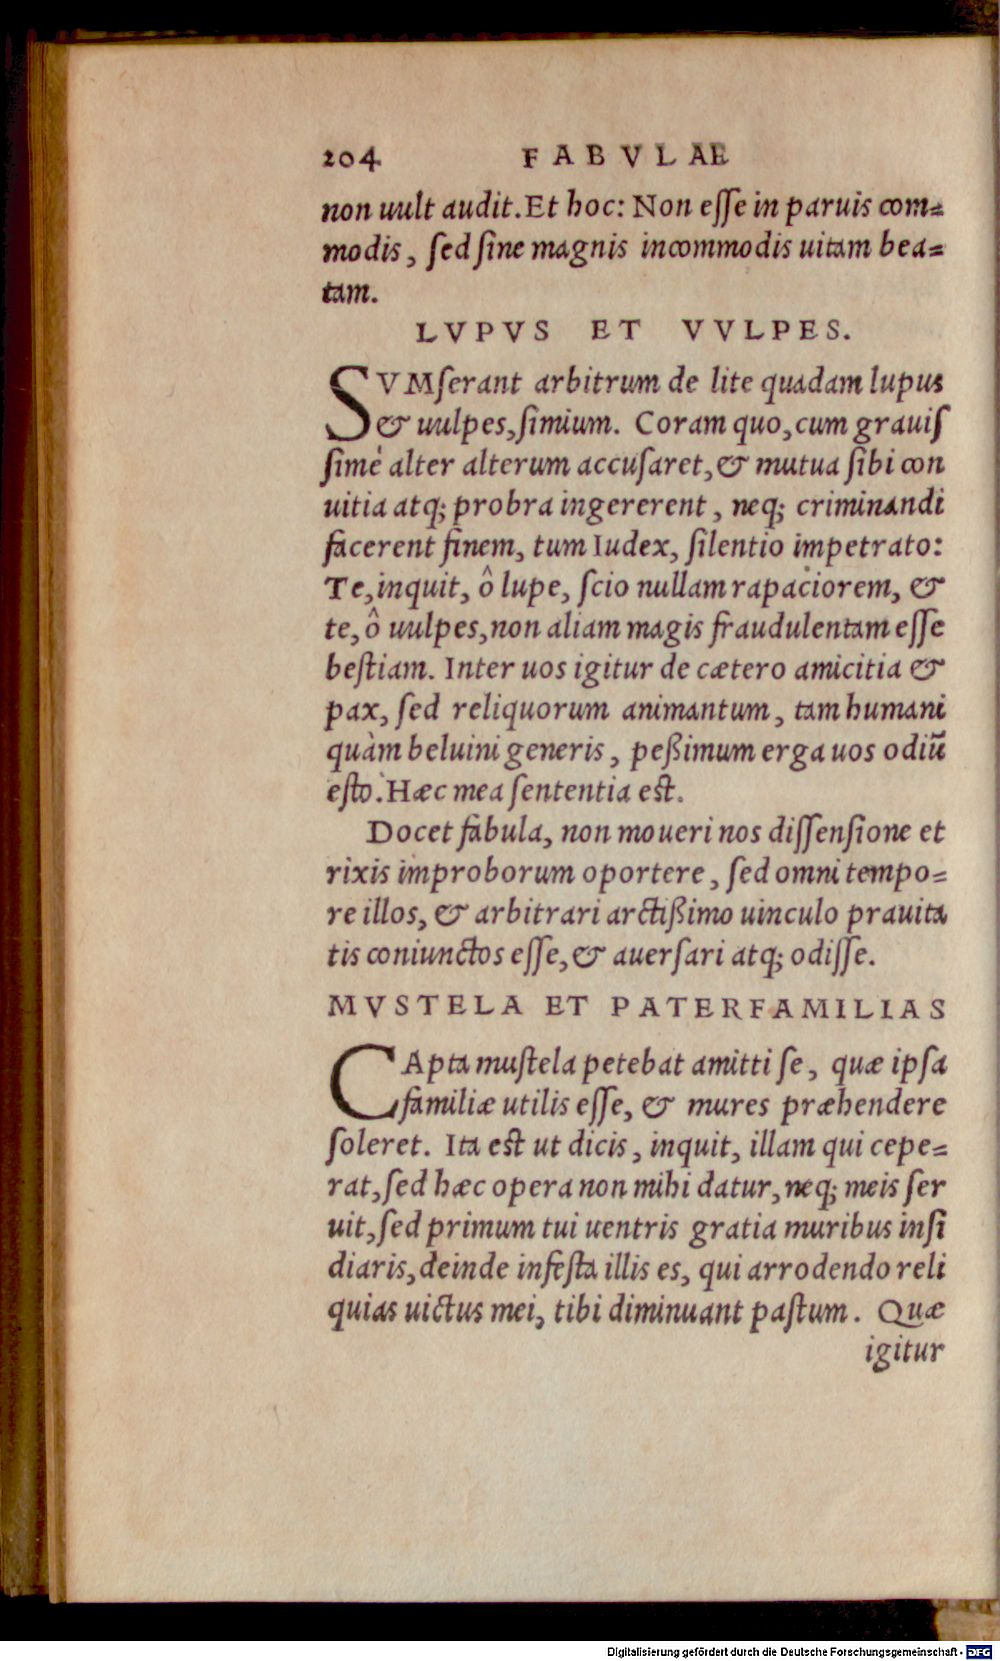 204 FABVLAE
non uult audit. Et hoc: Non eſſe in paruis com=
modis, ſed ſine magnis incommodis uitam bea=
tam.
LVPVS ET VVLPES.
SVMſerant arbitrum de lite quadam lupus
& uulpes, ſimium. Coram quo, cum grauiſ
ſimè alter alterum accuſaret, & mutua ſibi con
uitia atq; probra ingererent, neq; criminandi
facerent finem, tum Iudex, ſilentio impetrato:
Te, inquit, ô lupe, ſcio nullam rapaciorem, &
te, ô uulpes, non aliam magis fraudulentam eſſe
beſtiam. Inter uos igitur de cætero amicitia &
pax, ſed reliquorum animantum, tam humani
quàm beluini generis, peßimum erga uos odiū
eſto. Hæc mea ſententia eſt.
Docet fabula, non moueri nos diſſenſione et
rixis improborum oportere, ſed omni tempo=
re illos, & arbitrari arctißimo uinculo prauita
tis coniunctos eſſe, & auerſari atq; odiſſe.
MVSTELA ET PATERFAMILIAS
CApta muſtela petebat amitti ſe, quæ ipſa
familiæ utilis eſſe, & mures præhendere
ſoleret. Ita eſt ut dicis, inquit, illam qui cepe=
rat, ſed hæc opera non mihi datur, neq; meis ſer
uit, ſed primum tui uentris gratia muribus inſi
diaris, deinde infeſta illis es, qui arrodendo reli
quias uictus mei, tibi diminuant paſtum. Quæ
igitur
Digitalisierung gefördert durch die Deutsche Forschungsgemeinschaft - DFG